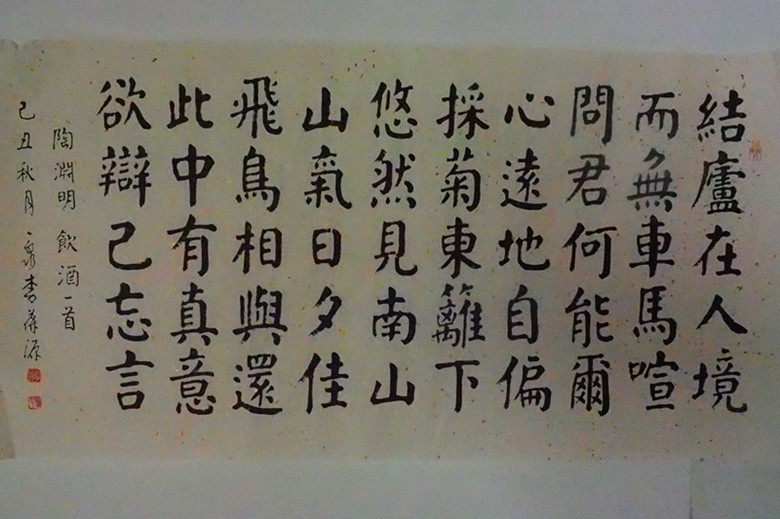 結廬在人境
而無車馬喧
問君何能爾
心遠地自偏
採菊東籬下
悠然見南山
山氣日夕佳
飛鳥相與還
此中有真意
欲辯己忘言
陶淵明 飲酒一首
己丑秋月 李